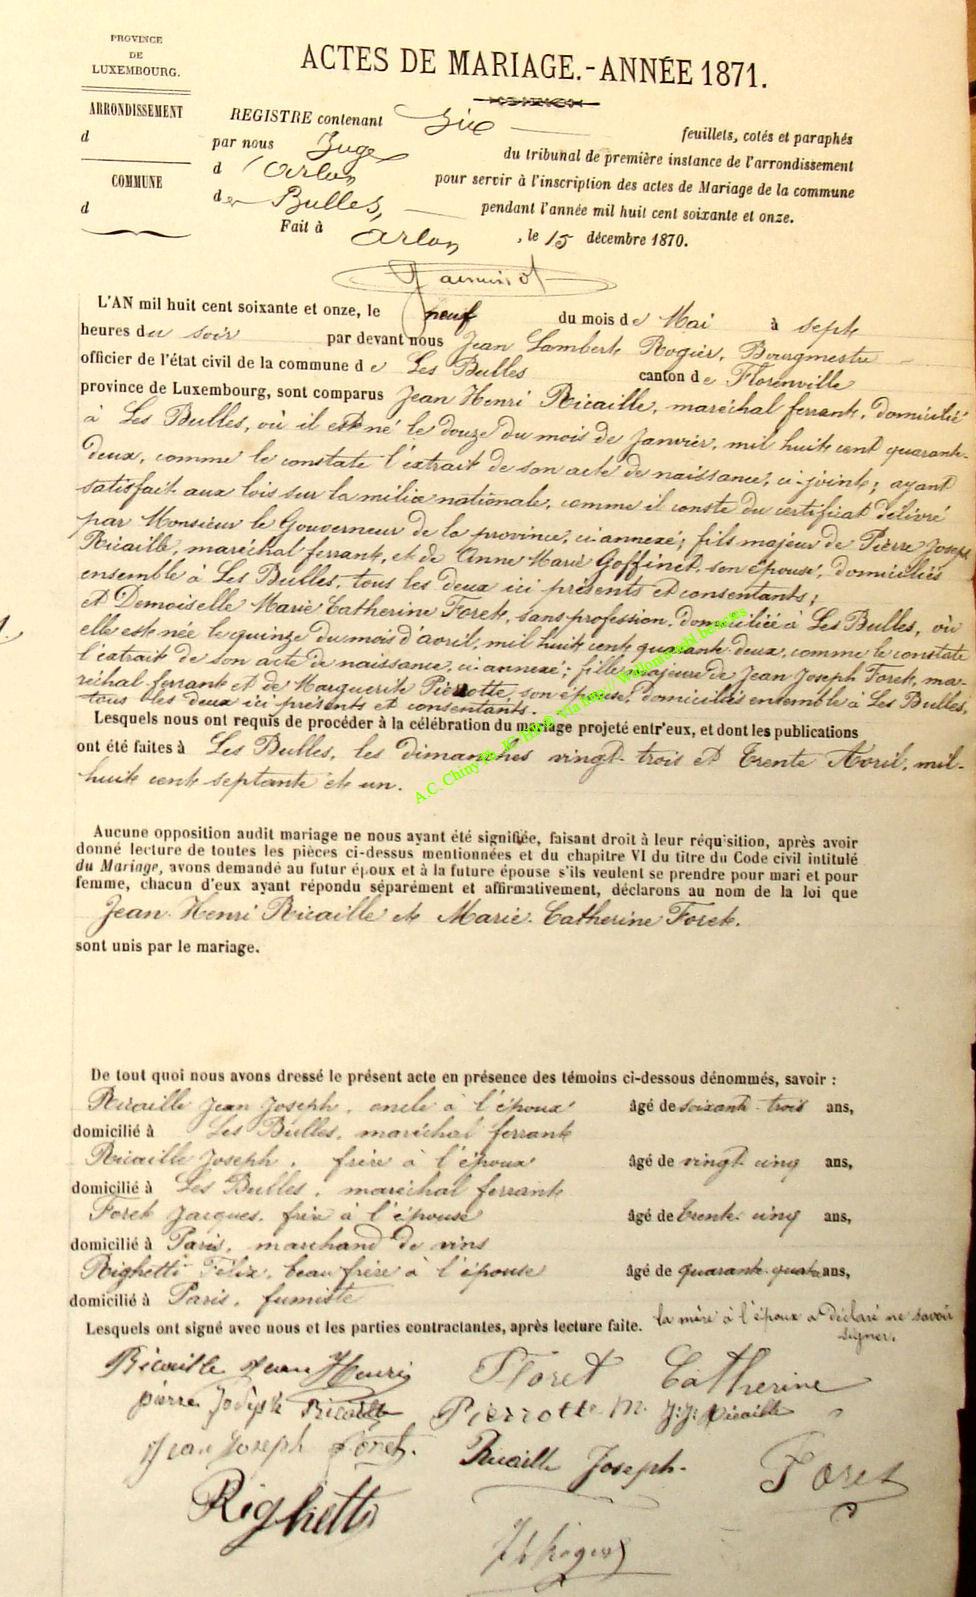 PROVINCE
DE
LUXEMBOURG.
ARRONDISSEMENT
d
COMMUNE
d
ACTES DE MARIAGE.-ANNÉE 1871.
REGISTRE contenant Six feuillets, cotés et paraphés
par nous Juge du tribunal de première instance de l'arrondissement
d'Arlon pour servir à l'inscription des actes de Mariage de la commune
des Bulles, pendant l'année mil huit cent soixante et onze.
Fait à Arlon, le 15 décembre 1870.
L'AN mil huit cent soixante et onze, le neuf du mois de Mai à sept
heures du soir par devant nous Jean Lambert Rogier, Bourgmestre
officier de l'état civil de la commune de Les Bulles canton de Florenville
province de Luxembourg, sont comparus Jean Henri Ricaille, maréchal ferrant, domicilié
à Les Bulles, où il est né le douze du mois de Janvier, mil huit cent quarante-
deux, comme le constate l'extrait de son acte de naissance, ci-joint; ayant
satisfait aux lois sur la milice nationale, comme il conste du certificat délivré
par Monsieur le Gouverneur de la province, ci-annexé; fils majeur de Pierre Joseph
Ricaille, maréchal ferrant, et de Anne Marie Goffinet, son épouse, domiciliés
ensemble à Les Bulles, tous les deux ici présents et consentants;
et Demoiselle Marie Catherine Foret, sans profession, domiciliée à Les Bulles, où
elle est née le quinze du mois d'avril, mil huit cent quarante-deux, comme le constate
l'extrait de son acte de naissance, ci-annexé; fille majeure de Jean Joseph Foret, ma-
réchal-ferrant et de Marguerite Pierrotte, son épouse, domiciliés ensemble à Les Bulles,
tous les deux ici présents et consentants.
Lesquels nous ont requis de procéder à la célébration du mariage projeté entr'eux, et dont les publications
ont été faites à Les Bulles, les dimanches vingt-trois et trente Avril, mil-
huit cent septante et un.
Aucune opposition audit mariage ne nous ayant été signifiée, faisant droit à leur réquisition, après avoir
donné lecture de toutes les pièces ci-dessus mentionnées et du chapitre VI du titre du Code civil intitulé
du Mariage, avons demandé au futur époux et à la future épouse s'ils veulent se prendre pour mari et pour
femme, chacun d'eux ayant répondu séparément et affirmativement, déclarons au nom de la loi que
Jean-Henri Ricaille et Marie-Catherine Foret.
sont unis par le mariage.
De tout quoi nous avons dressé le présent acte en présence des témoins ci-dessous dénommés, savoir :
Ricaille Jean Joseph, oncle à l'époux âgé de soixante-trois ans,
domicilié à Les Bulles, maréchal ferrant
Ricaille Joseph, frère à l'époux âgé de vingt-cinq ans,
domicilié à Les Bulles, maréchal ferrant
Foret Jacques, frère à l'épouse âgé de trente-cinq ans,
domicilié à Paris, marchand de vins
Righetti Félix, beau frère à l'épouse âgé de quarante-quatre ans,
domicilié à Paris, fumiste
Lesquels ont signé avec nous et les parties contractantes, après lecture faite. la mère à l'époux a déclaré ne savoir
signer.
Ricaille Jean Henri Floret Catherine
pierre Joseph Ricaille Pierrotte M. J. J. Ricaille
Jean Joseph Foret. Ricaille Joseph. Foret
Righetti